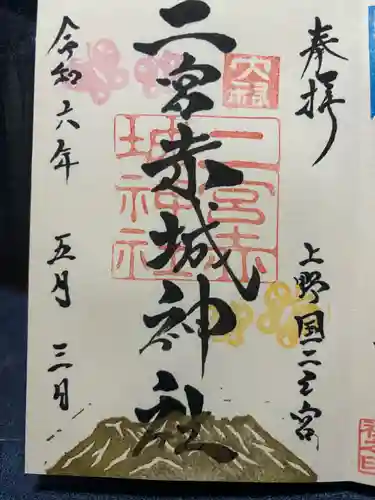 奉拝
上野国二之宮
二宮赤城神社
二宮赤城神社
令和六年 五月 三日